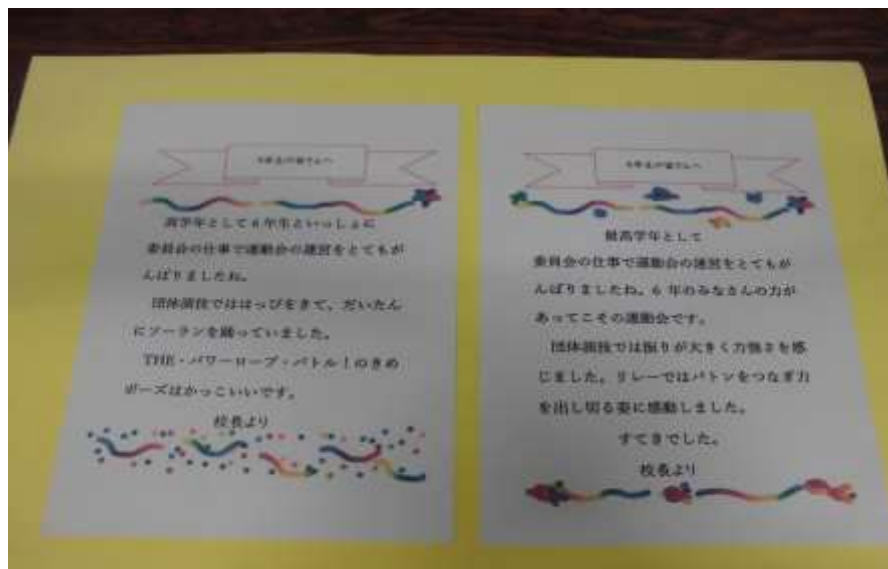 5年生の皆さんへ
高学年として6年生といっしょに
委員会の仕事で運動会の運営をとてもが
んばりましたね。
団体演技でははっぴをきて、だいたん
にソーランを踊っていました。
THE・パワーロープ・バトル!のきめ
ポーズはかっこいいです。
校長より
6年生の皆さんへ
最高学年として
委員会の仕事で運動会の運営をとてもが
んばりましたね。6年のみなさんの力が
あってこその運動会です。
団体演技では振りが大きく力強さを感
じました。リレーではバトンをつなぎ力
を出し切る姿に感動しました。
すてきでした。
校長より